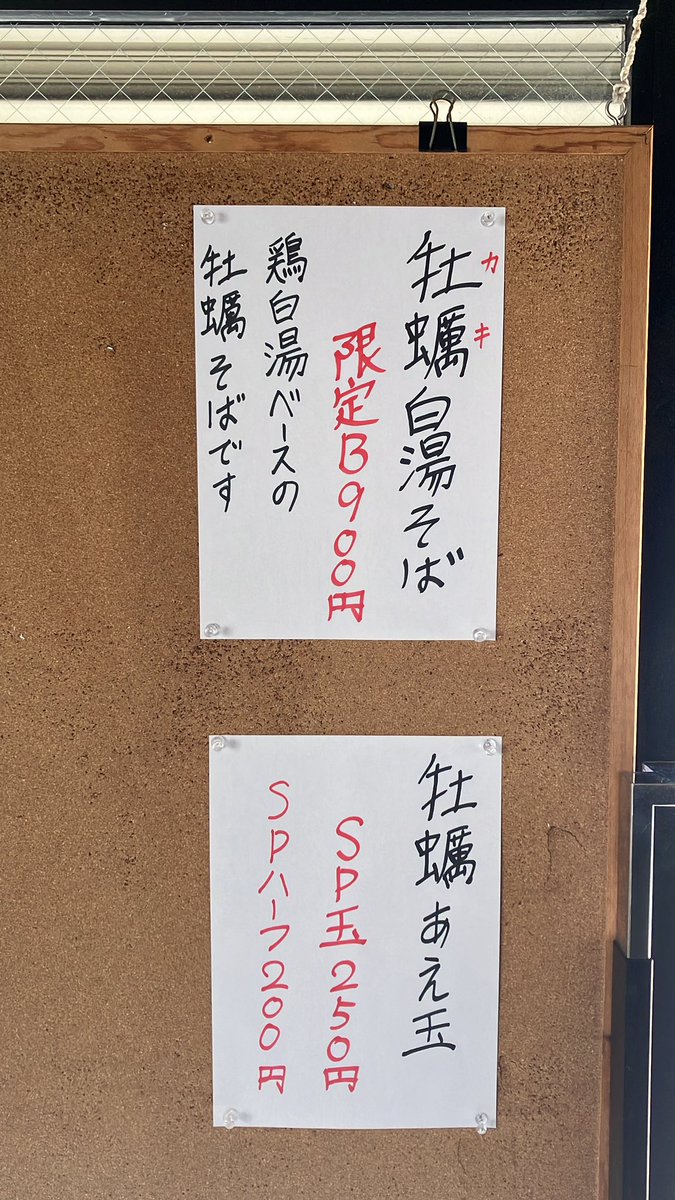 牡蠣白湯そば
カキ
限定B900円
鶏白湯ベースの
牡蠣そばです
牡蠣あえ玉
SP玉250円
SPハーフ200円